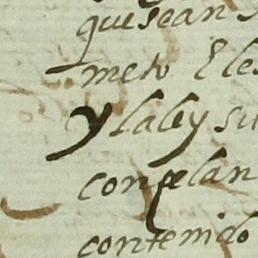 que sean
meto Eles
y la ley su
con pelan
contenido